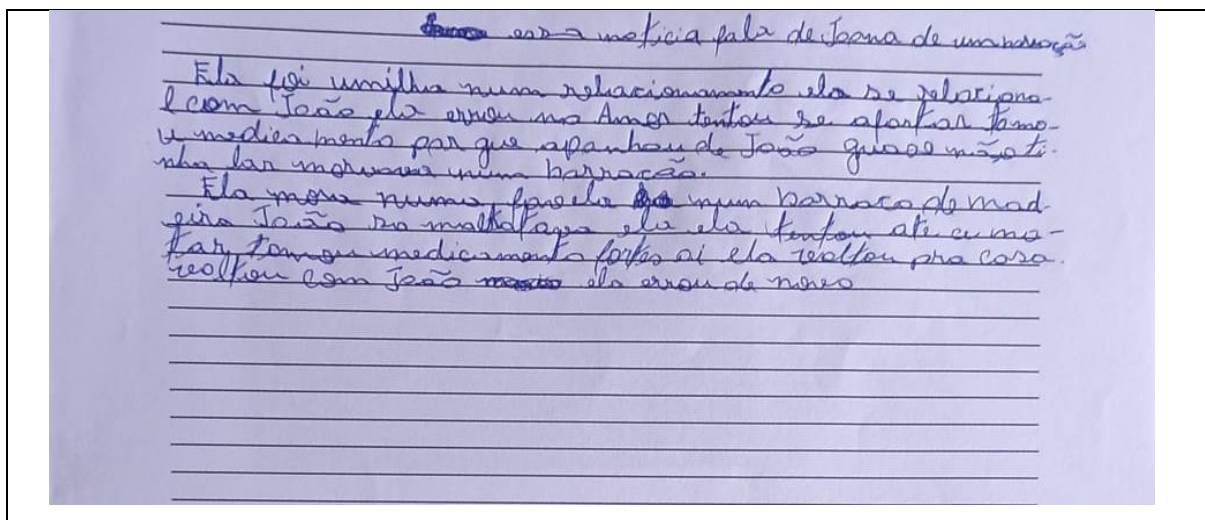 essa noticia fala de Joana de uma
Ela foi umilha num relacionamento ela se relaciona-
l com João ela errou no Amor tentou se afastar tomo-
u medicamento por que apanhou de João quase não ti-
nha lar morava numa barracão.
Ela mora numa favela num barraco de mad-
eira João so ela ela tentou ate
tar, tomou medicamento fortes ai ela voltou pra casa.
voltou com João ela errou de novo